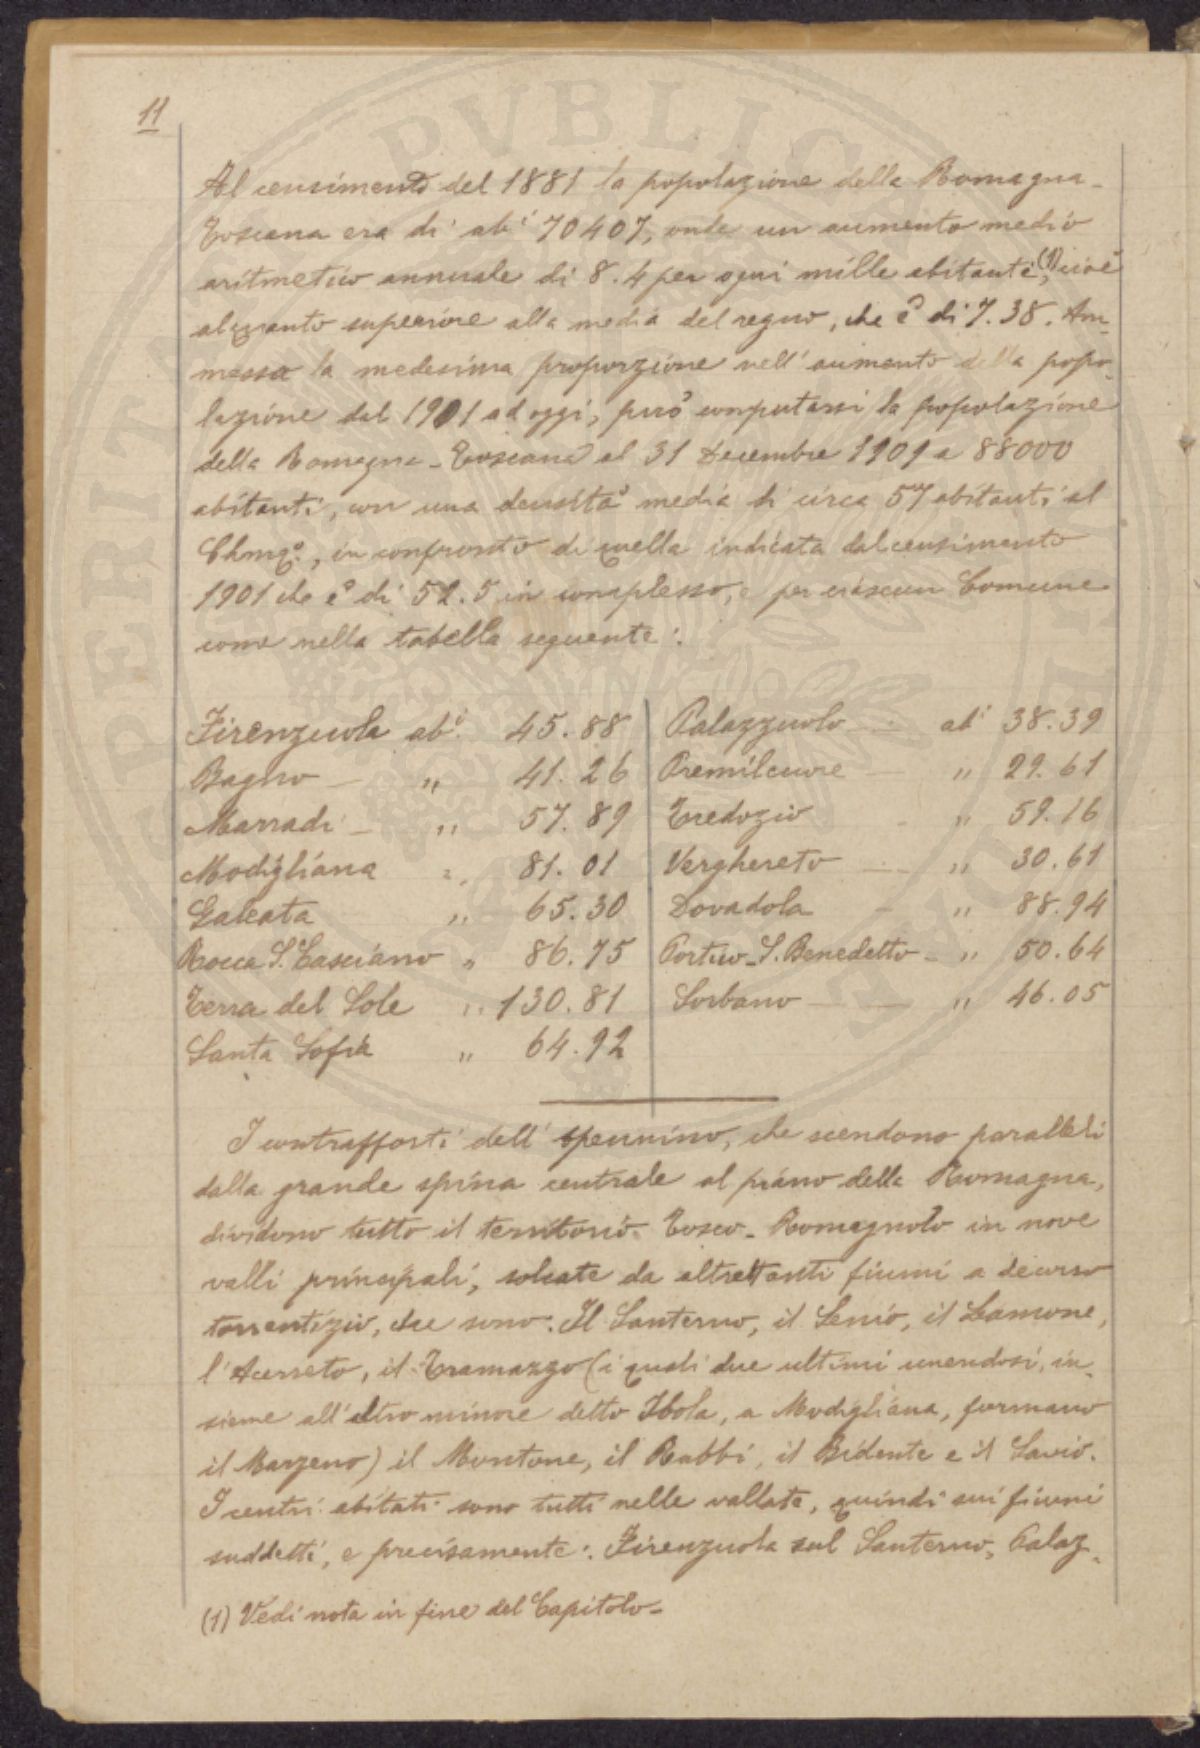 11
Al censimento del 1881 la popolazione della Romagna-
Toscana era di abi 70407, onde un aumento medio
aritmetico annuale di 8.4 per ogni mille abitanti,(1) cioè
alquanto superiore alla media del regno, che è di 7.38. Am-
messa la medesima proporzione nell'aumento della popo-
lazione dal 1901 ad oggi, può computarsi la popolazione
della Romagna-Toscana al 31 Decembre 1909 a 88000
abitanti, con una densità media di circa 57 abitanti al
Chmqo., in confronto di quella indicata dal censimento
1901 che è di 52.5 in complesso, e per ciascun Comune
come nella tabella seguente:
Firenzuola abi. 45.88 Palazzuolo - abi 38.39
Bagno - " 41.26 Premilcuore - " 29.61
Marradi - " 57.89 Tredozio - " 59.16
Modigliana " 81.01 Verghereto - " 30.61
Galeata " 65.30 Dovadola - " 88.94
Rocca S. Casciano " 86.75 Portico-S. Benedetto - " 50.64
Terra del Sole " 130.81 Sorbano - " 46.05
Santa Sofia " 64.92
I contrafforti dell'Apennino, che scendono paralleli
dalla grande spina centrale al piano della Romagna,
dividono tutto il territorio Tosco-Romagnolo in nove
valli principali, solcate da altrettanti fiumi a decorso
torrentizio, che sono: Il Santerno, il Senio, il Lamone,
l'Acerreto, il Tramazzo (i quali due ultimi unendosi, in-
sieme all'altro minore detto Ibola, a Modigliana, formano
il Marzeno) il Montone, il Rabbi, il Bidente e il Savio.
I centri abitati sono tutti nelle vallate, quindi sui fiumi
suddetti, e precisamente: Firenzuola sul Santerno, Palaz-
(1) Vedi nota in fine del Capitolo-